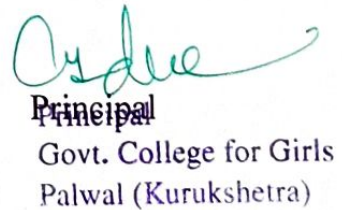 Principal
Govt. College for Girls
Palwal (Kurukshetra)